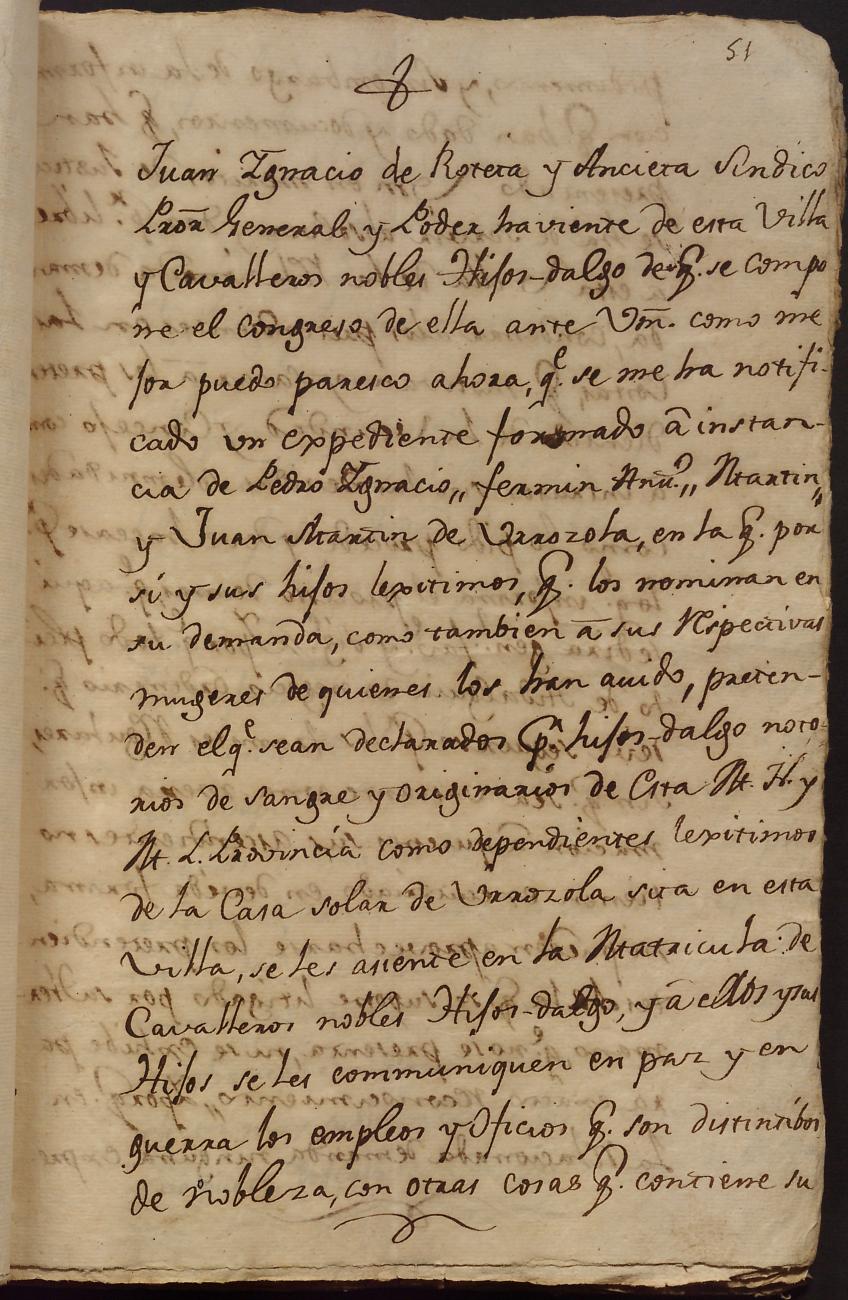 51
Juan Ygnacio de Roteta y Ancieta Sindico
Prõr General y Poder haviente de esta Villa
y Cavalleros nobles Hijos-dalgo de q.̃ se compo
ne el congreso de ella ante Vm̃. como me
jor puedo paresco ahora, q.e se me ha notifi-
cado un expediente formado â instan-
cia de Pedro Ygnacio,, fermin Anu.o,, Martin,,
y Juan Martin de Urrozola, en la q.̃ por
si y sus hijos lexitimos, q.̃ los nominan en
su demanda, como tambien â sus Respectivas
mugeres de quienes los han auido, preten-
den el q.e sean declarados p.r hijos-dalgo noto-
rios de sangre y originarios de Esta M. N. y
M. L. Provincia como dependientes lexitimos
de la Casa solar de Urrozola sita en esta
Villa, se les asiente en la Matricula de
Cavalleros nobles Hijos-dalgo, y â ellos y sus
Hijos se les communiquen en paz y en
guerra los empleos y Oficios q.̃ son distintibos
de nobleza, con otras cosas q.̃ contiene su